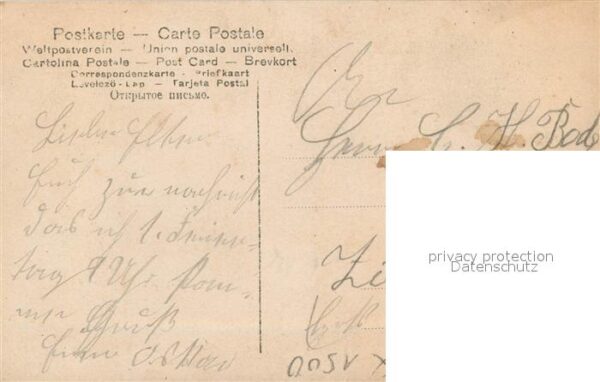 Postkarte — Carte Postale
Weltpostverein — Union postale universell.
Cartolina Postale — Post Card — Brevkort
Correspondenzkarte - Briefkaart
Levelező-Lap — Tarjeta Postal
Открытое письмо.
Liebe Eltern
Euch zur nachricht
das ich 1. Feier-
tag 9 Uhr kom-
me Gruß
Euer
An
Herrn C. H. Bod
privacy protection
Datenschutz